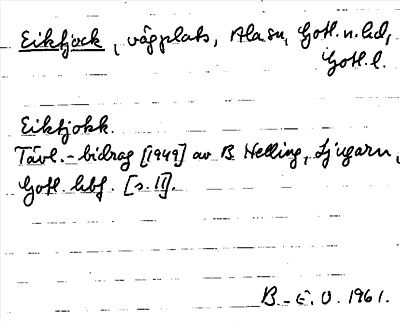 Eiktjock, vägplats, Ala sn, Gotl. n. hd,
Gotl. l.
Eiktjokk.
Tävl.-bidrag [1949] av B Helling, Ljugarn,
Gotl. hbf. [s. 11].
B.-E. O. 1961.